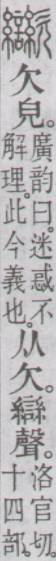 欠皃。
廣韵曰。迷惑不
解理。此今義也。
从欠。䜌聲。
洛官切
十四部。